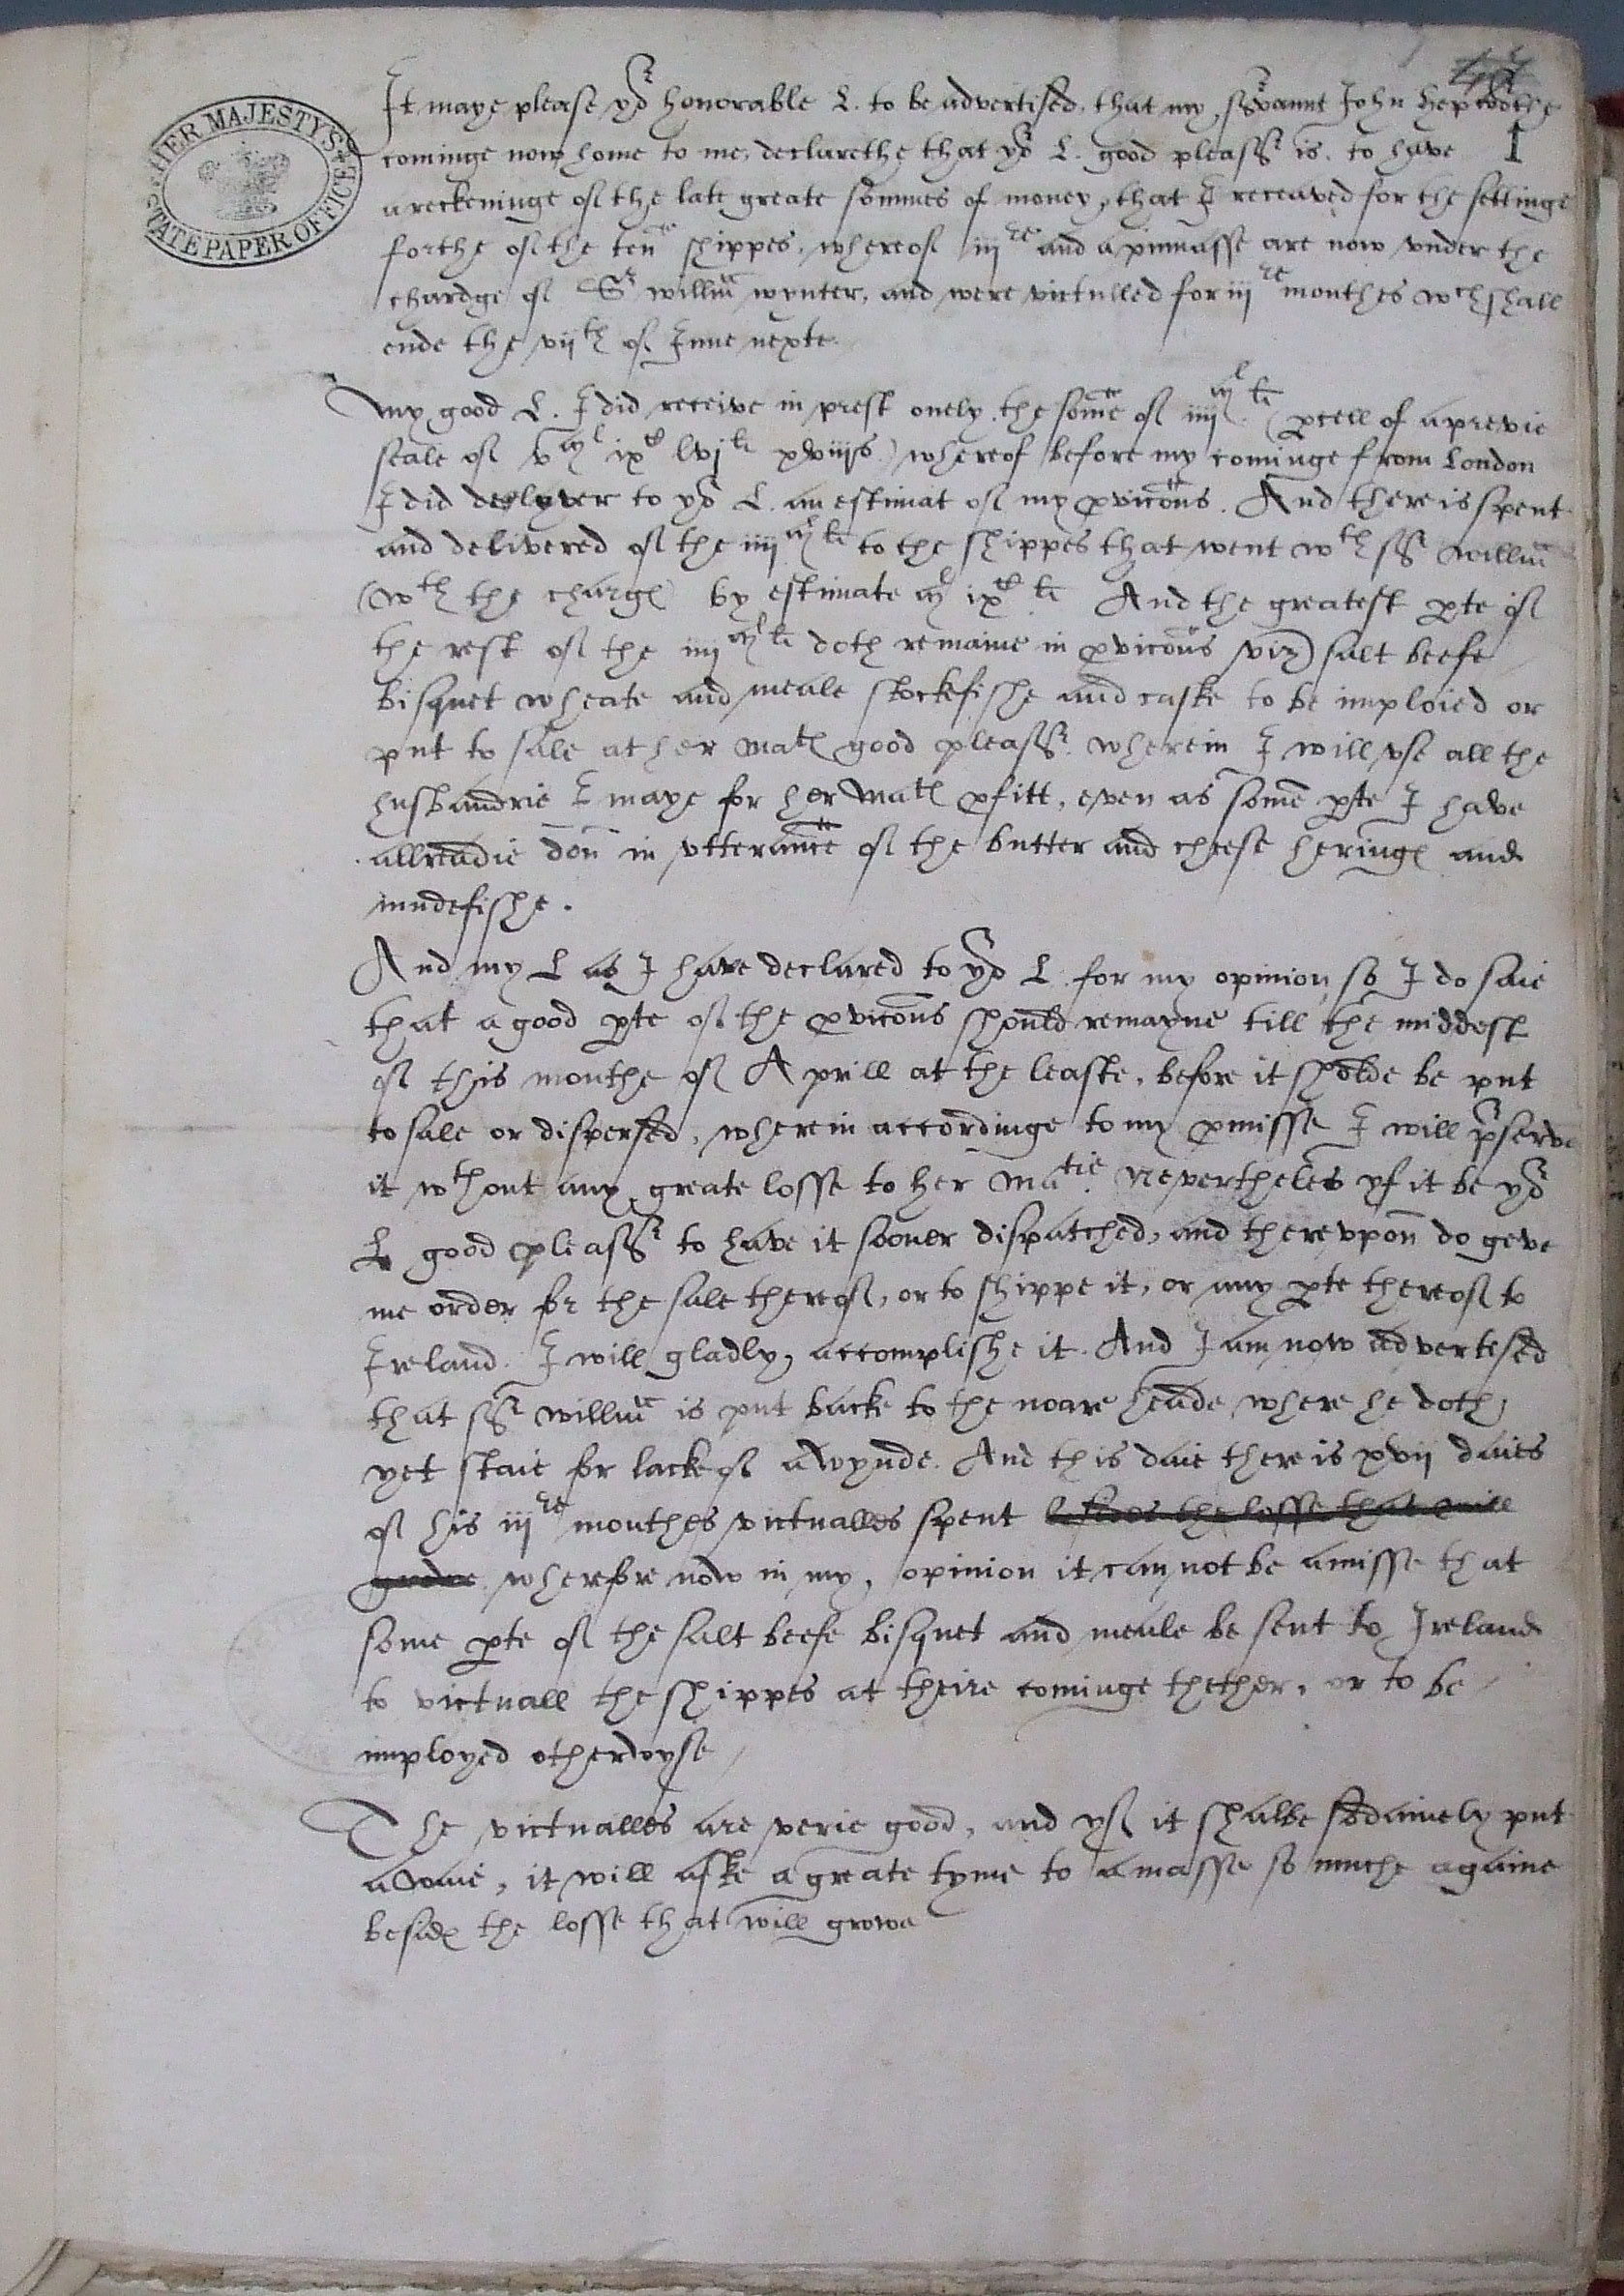 HER MAJESTY'S STATE PAPER OFFICE
1
It maye please yor honorable L. to be advertised, that my srvannt John Hepworthe
cominge now home to me, declarethe that yor L. good pleassr is. to have
a reckeninge of the late greate sommes of money, that I receaved for the settinge
forthe of the tenn shippes, whereof iijre and a pinnasse are now vnder the
chardge of Sr willm wynter, and were victulled for iijre monthes wch shall
ende the vijth of June nexte.
My good L. I did receive in prest onely the some of iiijml li (pcell of a previe
seale of vml ixc lvjli xviijs) whereof before my cominge from London
I did delyver to yor L. an estimat of my pvicons. And there is spent
and delivered of the iiijml li to the shippes that went wth sr willm
(wth the charges) by estimate ml ixc li And the greatest pte of
the rest of the iiijml li doth remaine in pvicons viz salt beefe
bisquet wheate and meale stockefishe and caske to be imploied or
put to sale at her Mats good pleassr. wherein I will vse all the
husbandrie I maye for her Mats pfitt, even as some pte I have
allreadie don in vtterance of the butter and cheese heringes and
mudefishe.
And my L as I have declared to yor L for my opinion, so I do saie
that a good pte of the pvicons should remayne till the middest
of this monthe of Aprill at the leaste, before it sholde be put
to sale or dispersed, wherein accordinge to my pmisse I will pserve
it wthout any greate losse to her Matie. Neverthelес yf it be yor
L good pleassr to have it sooner dispatched, and therevpon do geve
me order for the sale thereof, or to shippe it, or any pte thereof to
Ireland. I will gladly accomplishe it. And I am now advertised
that sr willm is put backe to the noare heade where he doth
yet staie for lacke of a wynde. And this daie there is xvij daies
of his iijre monthes victualles spent besides the losse that will
growe wherefore now in my opinion it can not be amisse that
some pte of the salt beefe bisquet and meale be sent to Ireland
to victuall the shippes at theire cominge thether, or to be
imployed otherwyse
The victualles are verie good, and yf it shalbe sodainely put
awaie, it will aske a greate tyme to amasse so muche againe
besides the losse that will growe